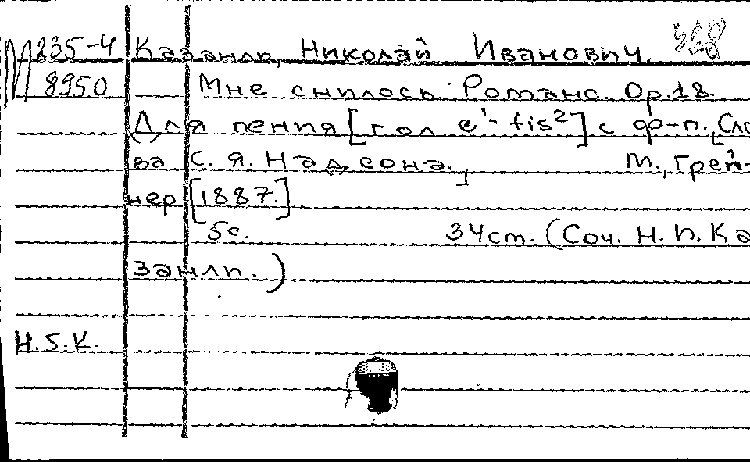 М 235-4 Казанли, Николай Иванович. 328
8950 Мне снилось. Романс. Op.18.
Для пения [гол e¹-fis²] с ф-п., [Сло-
ва С. Я. Надсона.] М., Грей-
нер [1887.]
5с. 34ст. (Соч. Н. И. Ка
занли.)
Н.Б.К.